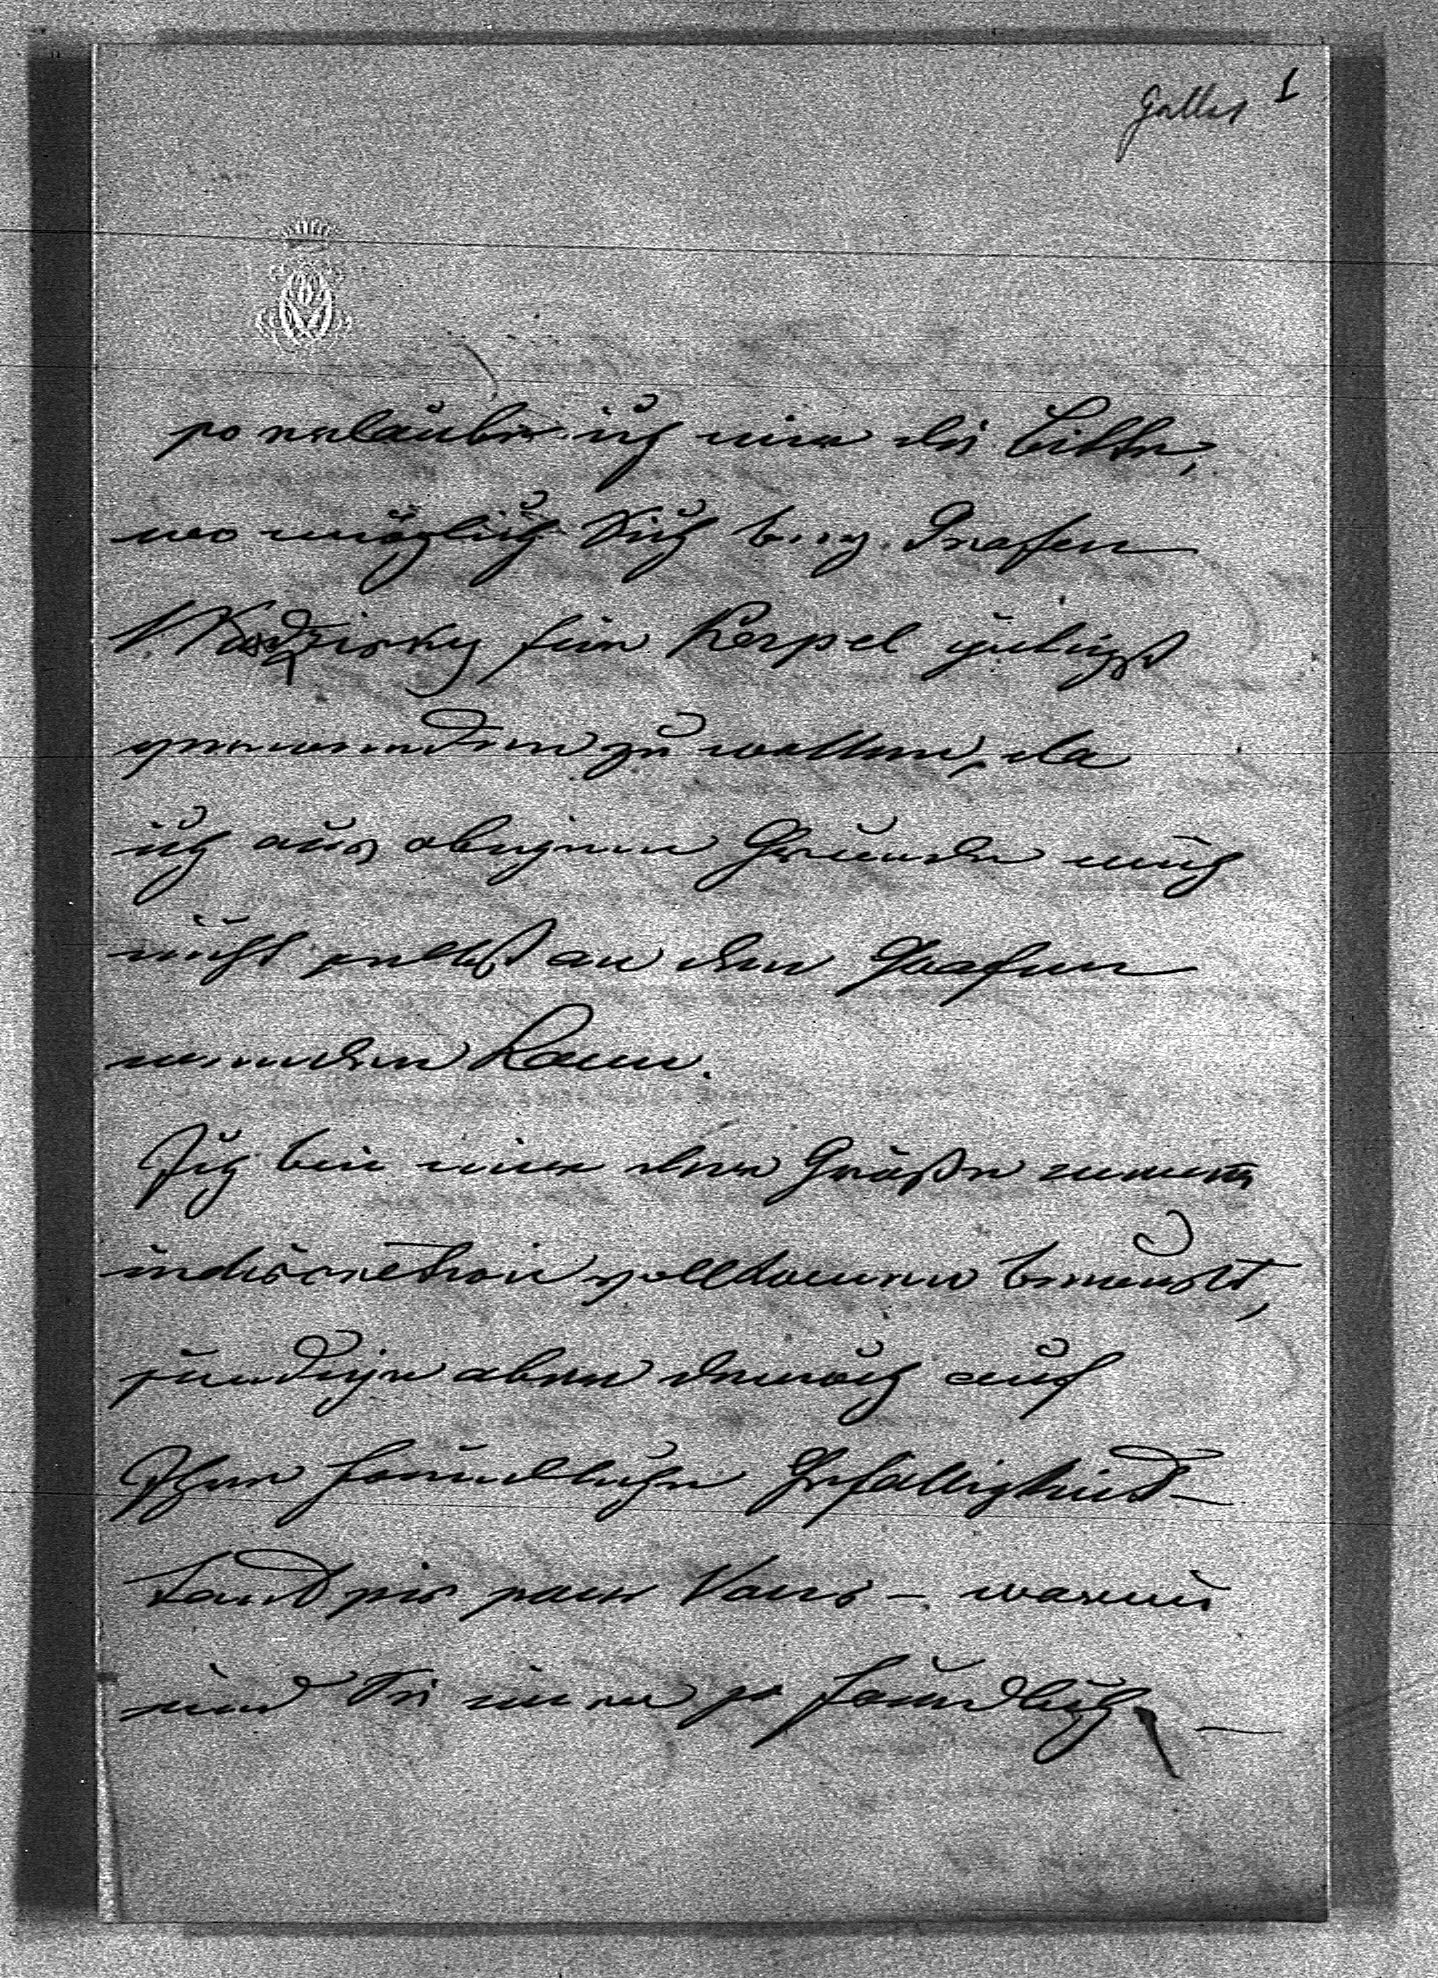 1
so erlaube ich mir die Bitte,
wo möglich Sich b. Grafen
für Kospel gütigst
verwenden zu wollen, da
ich aus obigem Grunde mich
nicht selbst an den Grafen
wenden kann.
Ich bin mir der Größe meiner
indiscretion vollkommen bewußt,
sündige aber dennoch auf
Ihre freundliche Gefälligkeit –
Tant pis pour Vous –. warum
sind Sie immer so freundlich, –